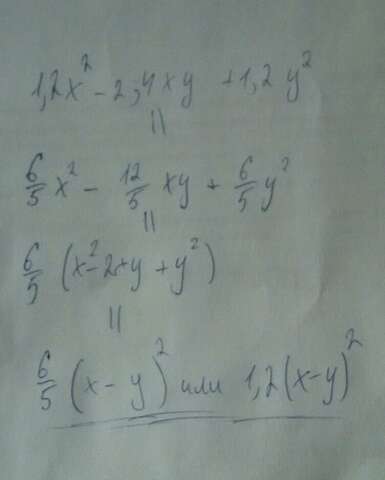 1,2x² - 2,4xy + 1,2y²
=
6/5 x² - 12/5 xy + 6/5 y²
=
6/5 (x² - 2xy + y²)
=
6/5 (x - y)² или 1,2(x-y)²